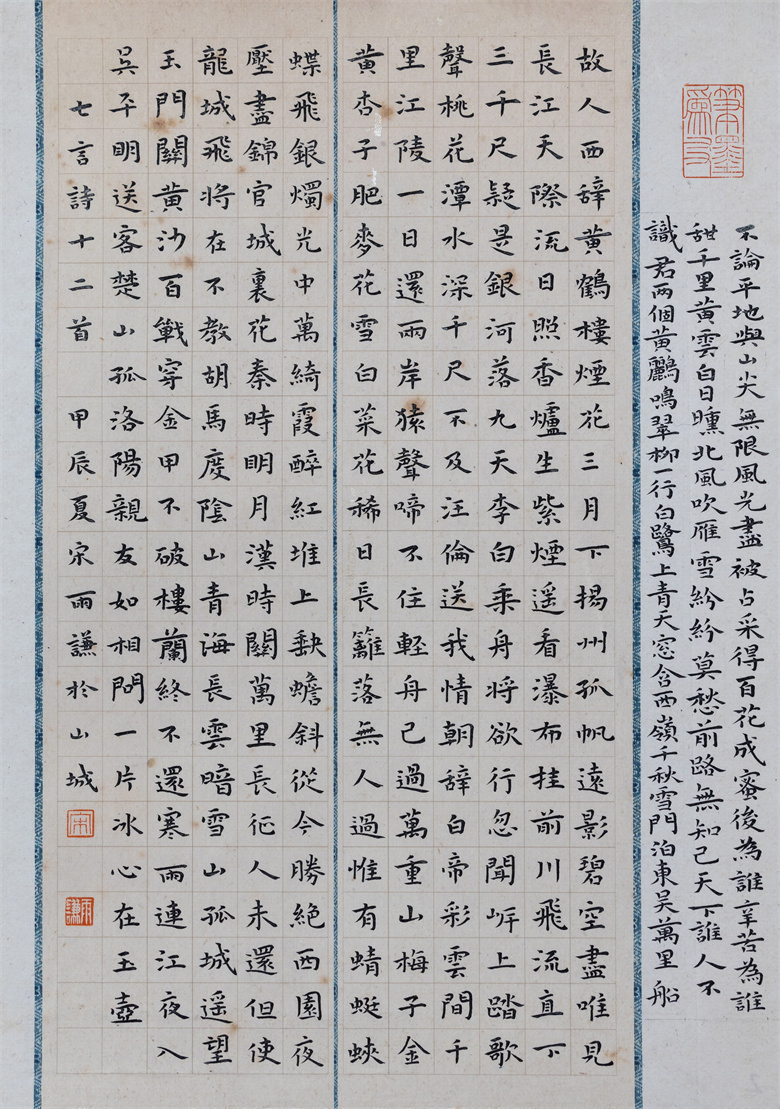 不論平地與山尖無限風光盡被占采得百花成蜜後為誰辛苦為誰
甜千里黃雲白日曛北風吹雁雪紛紛莫愁前路無知己天下誰人不
識君兩個黃鸝鳴翠柳一行白鷺上青天窓含西嶺千秋雪門泊東吳萬里船
故人西辭黃鶴樓煙花三月下揚州孤帆遠影碧空盡唯見
長江天際流日照香爐生紫煙遥看瀑布挂前川飛流直下
三千尺疑是銀河落九天李白乘舟将欲行忽聞岸上踏歌
聲桃花潭水深千尺不及汪倫送我情朝辭白帝彩雲間千
里江陵一日還兩岸猿聲啼不住輕舟已過萬重山梅子金
黃杏子肥麥花雪白菜花稀日長籬落無人過惟有蜻蜓蛺
蝶飛銀燭光中萬綺霞醉紅堆上缺蟾斜從今勝絕西園夜
壓盡錦官城裏花秦時明月漢時關萬里長征人未還但使
龍城飛将在不教胡馬度陰山青海長雲暗雪山孤城遥望
玉門關黃沙百戰穿金甲不破樓蘭終不還寒雨連江夜入
吳平明送客楚山孤洛陽親友如相問一片冰心在玉壺
七言詩十二首 甲辰夏宋雨謙於山城
宋
雨謙